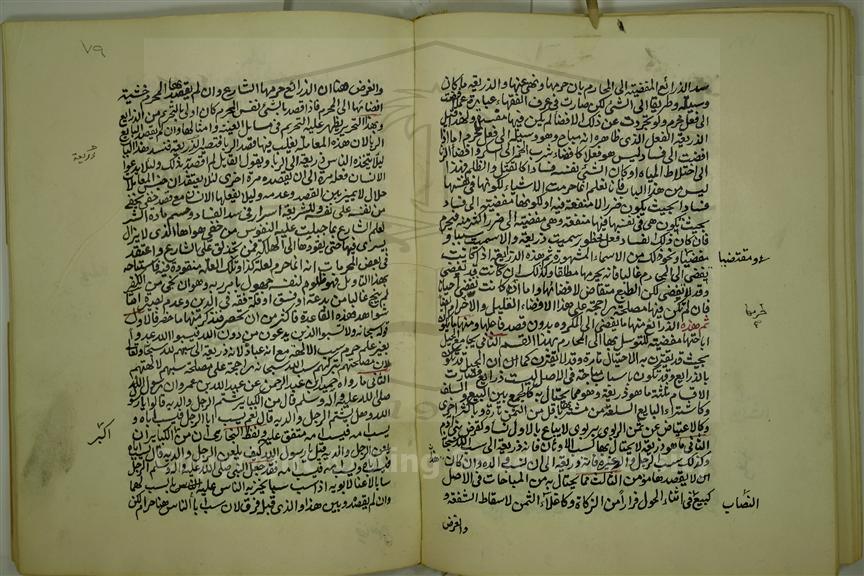 سد الذرائع المفضية الى المحارم بان حرمها ونهى عنها والذريعة ما كان
وسيلة وطريقا الى الشئ لكن صارت في عرف الفقهاء عبارة عما افضت
الى فعل محرم ولو تجردت عن ذلك الافضاء لم يكن فيها مفسدة ولهذا قيل
الذريعة الفعل الذى ظاهره انه مباح وهو وسيلة الى فعل المحرم اما اذا
افضت الى فساد ليس هو فعلا كافضاء شرب الخمر الى السكر وافضاء الزنا
الى اختلاط المياه او كان الشئ نفسه فسادا كالقتل والظلم فهذا
ليس من هذا الباب فانا نعلم انما حرمت الاشياء لكونها في نفسها
فسادا بحيث تكون ضررا لا منفعة فيه او لكونها مفضية الى فساد
بحيث تكون هي في نفسها فيها منفعة وهي مفضية الى ضرر اكثر منه فتحرم
فان كان ذلك الفساد فعل محظور سميت ذريعة والا سميت سببا و
مقتضيا ونحو ذلك من الاسماء المشهورة ثم هذه الذرائع اذا كانت
تفضي الى المحرم غالبا فانه يحرمها مطلقا وكذلك ان كانت قد تفضي
وقد لا تفضي لكن الطبع متقاض لافضائها واما ان كانت تفضي احيانا
فان لم يكن فيها مصلحة راجحة على هذا الافضاء القليل والا حرمها
ثم هذه الذرائع منها ما يفضي الى المكروه بدون قصد فاعلها ومنها ما تكون
اباحتها مفضية للتوسل بها الى المحارم فهذا القسم الثاني يجامع الحيل
بحيث قد يقترن به الاحتيال تارة وقد لا يقترن كما ان الحيل قد تكون
بالذرائع وقد تكون باسباب مباحة في الاصل ليست ذرائع فصارت
الاقسام ثلثة ما هو ذريعة وهو مما يحتال به كالجمع بين البيع والسلف
وكاشتراء البايع السلعة من مشتريها باقل من الثمن تارة وباكثر اخرى
وكالاعتياض عن ثمن الربوي بربوي لا يباع بالاول نسا وكقرض بني آدم
الثاني ما هو ذريعة لا يحتال بها كسب الاوثان فانه ذريعة الى سب الله سبحانه
وكذلك سب الرجل والد غيره فانه ذريعة الى ان يسب والده وان كان هذان
لا يقصدهما مؤمن الثالث ما يحتال به من المباحات في الاصل
كبيع في اثناء الحول فرارا من الزكاة وكاغلاء الثمن لاسقاط الشفعة و
والغرض
النصاب
٧٩
والغرض هنا ان الذرائع حرمها الشارع وان لم يقصد بها المحرم خشية
افضائها الى المحرم فاذا قصد بالشئ نفس المحرم كان اولى بالتحريم من الذرائع
وبهذا التحرير يظهر علة التحريم في مسائل العينة وامثالها وان لم يقصد البايع
الربا لان هذه المعاملة يغلب فيها قصد الربا فتصير ذريعة فيسد هذا الباب
ليلا يتخذه الناس ذريعة الى الربا ويقول القائل لم اقصد به ذلك وليلا يدعو
الانسان فعله مرة الى ان يقصده مرة اخرى لئلا يعتقد ان جنس المعاملة
حلال لا يميز بين القصد وعدمه وليلا يفعلها الانسان مع قصد خفي يخفى
من نفسه على نفسه وللشريعة اسرار في سد الفساد وحسم مادة الشر
لعلم الشارع بما جبلت عليه النفوس من خفي هواها الذي لا يزال
يسري فيها حتى يقودها الى الهلكة فمن تحذلق على الشارع واعتقد
في بعض المحرمات انه انما حرم لعلة كذا وتلك العلة مفقودة فيه فاستباحه
بهذا التاويل فهو ظلوم لنفسه جهول بامر ربه وهو ان نجا من الكفر
لم ينج غالبا من بدعة او فسق او قلة فقه في الدين وعدم بصيرة اما
شواهد هذه القاعدة فاكثر من ان تحصر فنذكر منها ما حضر فالاول
قوله سبحانه ولا تسبوا الذين يدعون من دون الله فيسبوا الله عدوا
بغير علم حرم سب الالهة مع انه عبادة لانه ذريعة الى سبهم لله سبحانه وتعالى
لان مصلحة تركهم سب الله سبحانه راجحة على مصلحة سبنا لالهتهم
الثاني ما رواه حميد بن عبد الرحمن عن عبد الله بن عمرو ان رسول الله
صلى الله عليه وآله وسلم قال من الكبائر شتم الرجل والديه قالوا يا رسول
الله وهل يشتم الرجل والديه قال نعم يسب ابا الرجل فيسب اباه و
يسب امه فيسب امه متفق عليه ولفظ البخاري ان من اكبر الكبائر ان
يلعن الرجل والديه قيل يا رسول الله كيف يلعن الرجل والديه قال يسب ابا
الرجل فيسب اباه ويسب امه فيسب امه فقد جعل النبي صلى الله عليه وآله وسلم الرجل
سابا لاعنا لابويه اذا سب سبا يجزيه الناس عليه بالسب لهما
وان لم يقصده وبين هذا والذي قبله فرق لان سب ابا الناس هنا حرام لكن
ذريعة
اكبر